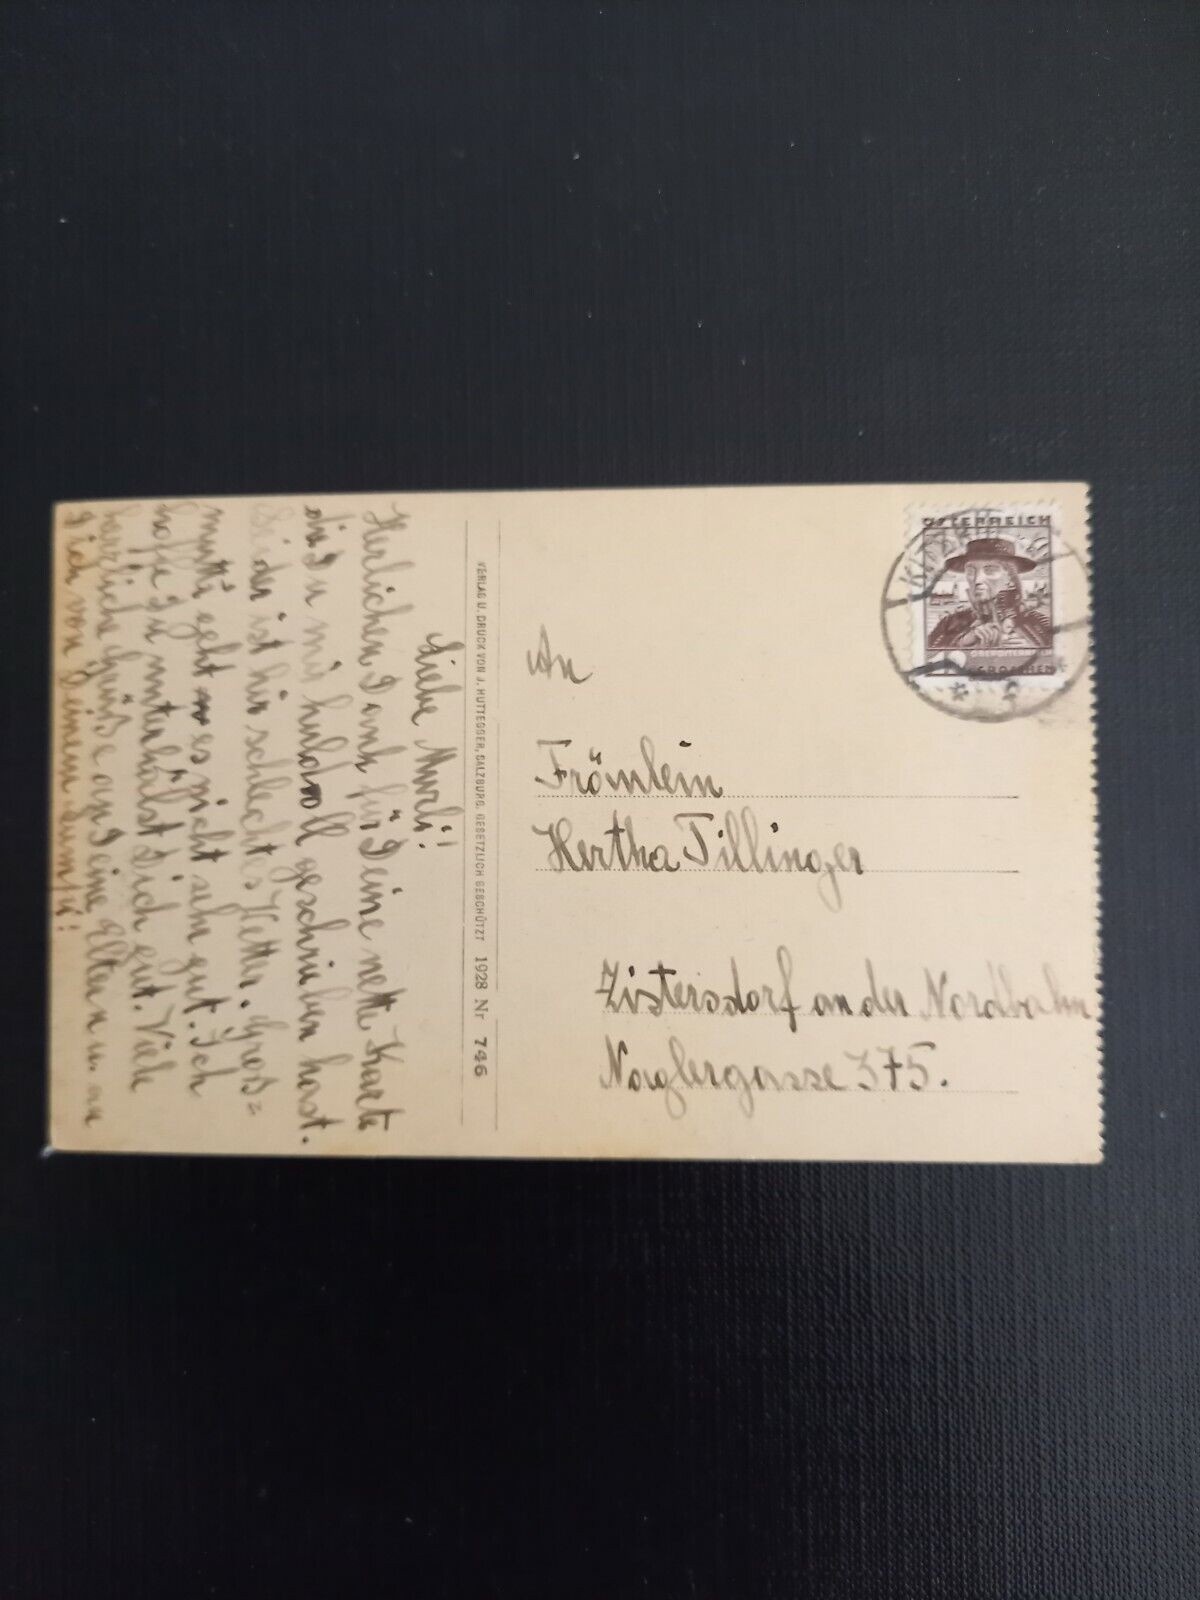 Liebe Murli!
Herlichen Dank für Deine nette Karte
die Du mir huldvoll geschrieben hast.
Leider ist hir schlechtes Wetter. Gros=
mutti geht es nicht sehr gut. Ich
hoffe Du unterhälst Dich gut. Viele
herrliche Grüße an Deine Eltern u. an
Dich von Deinem
VERLAG U. DRUCK VON J. HUTTEGGER, SALZBURG. GESETZLICH GESCHÜTZT 1928 Nr 746
ÖSTERREICH
OBERÖSTERREICH
GROSCHEN
An
Fröulein
Hertha Tillinger
Zistersdorf an der Nordbahn
Naglergasse 375.